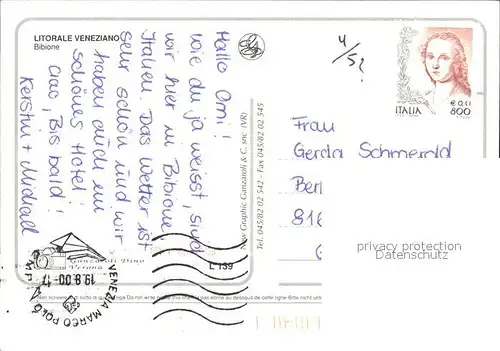 LITORALE VENEZIANO
Bibione
Hallo Omi!
Wie du ja weisst, sind
wir hier in Bibione
Italien. Das Wetter ist
sehr schön und wir
haben auch ein
schönes Hotel!
Ciao, Bis bald!
Kerstin + Michael
4/5?
ITALIA
€ 0,41
800
Frau
Gerda Schmerold
Ber
816
privacy protection
Datenschutz
Graphic Ganzaroli & C. snc (VR)
Tel. 045/82 02 542 - Fax 045/82 02 545
L 139
Ganzaroli Dino
Verona
VENEZIA MARCO POLO
19.8.00-17